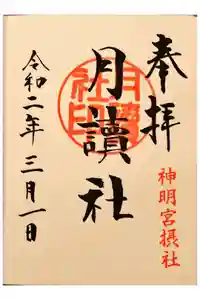 奉拝
神明宮摂社
月讀社
月讀社印
令和二年三月一日